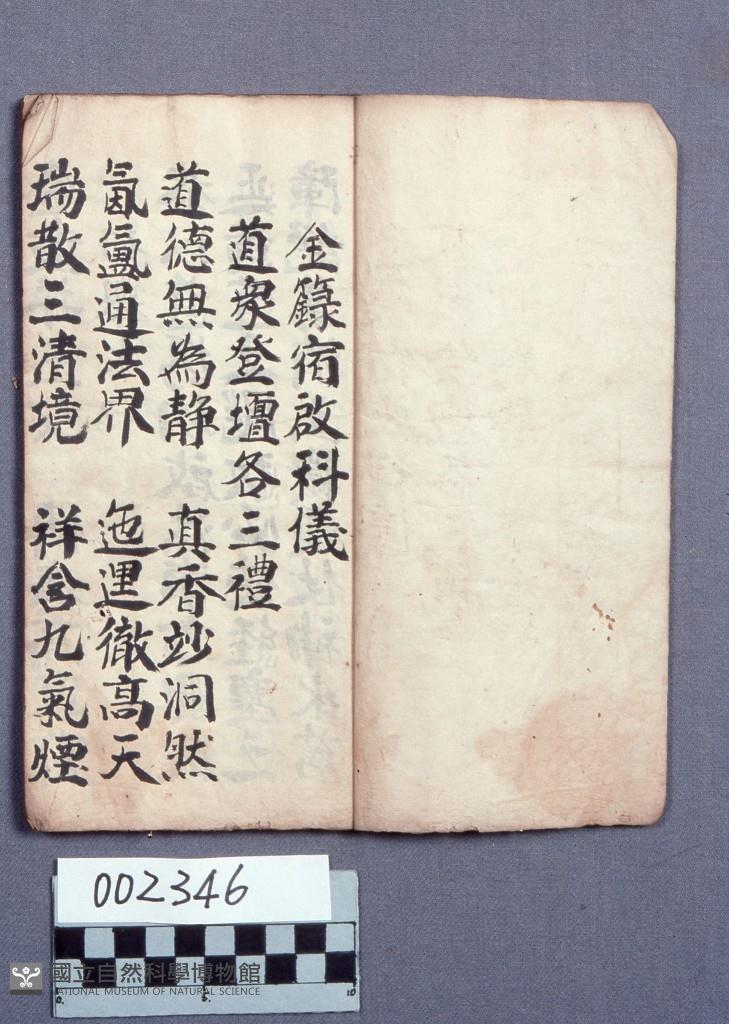 金籙宿啟科儀
道眾登壇各三禮
道德無為静 真香妙洞然
氤氳通法界 迤逦徹高天
瑞散三清境 祥含九氣煙
002346
國立自然科學博物館
NATIONAL MUSEUM OF NATURAL SCIENCE
0. 5. 10